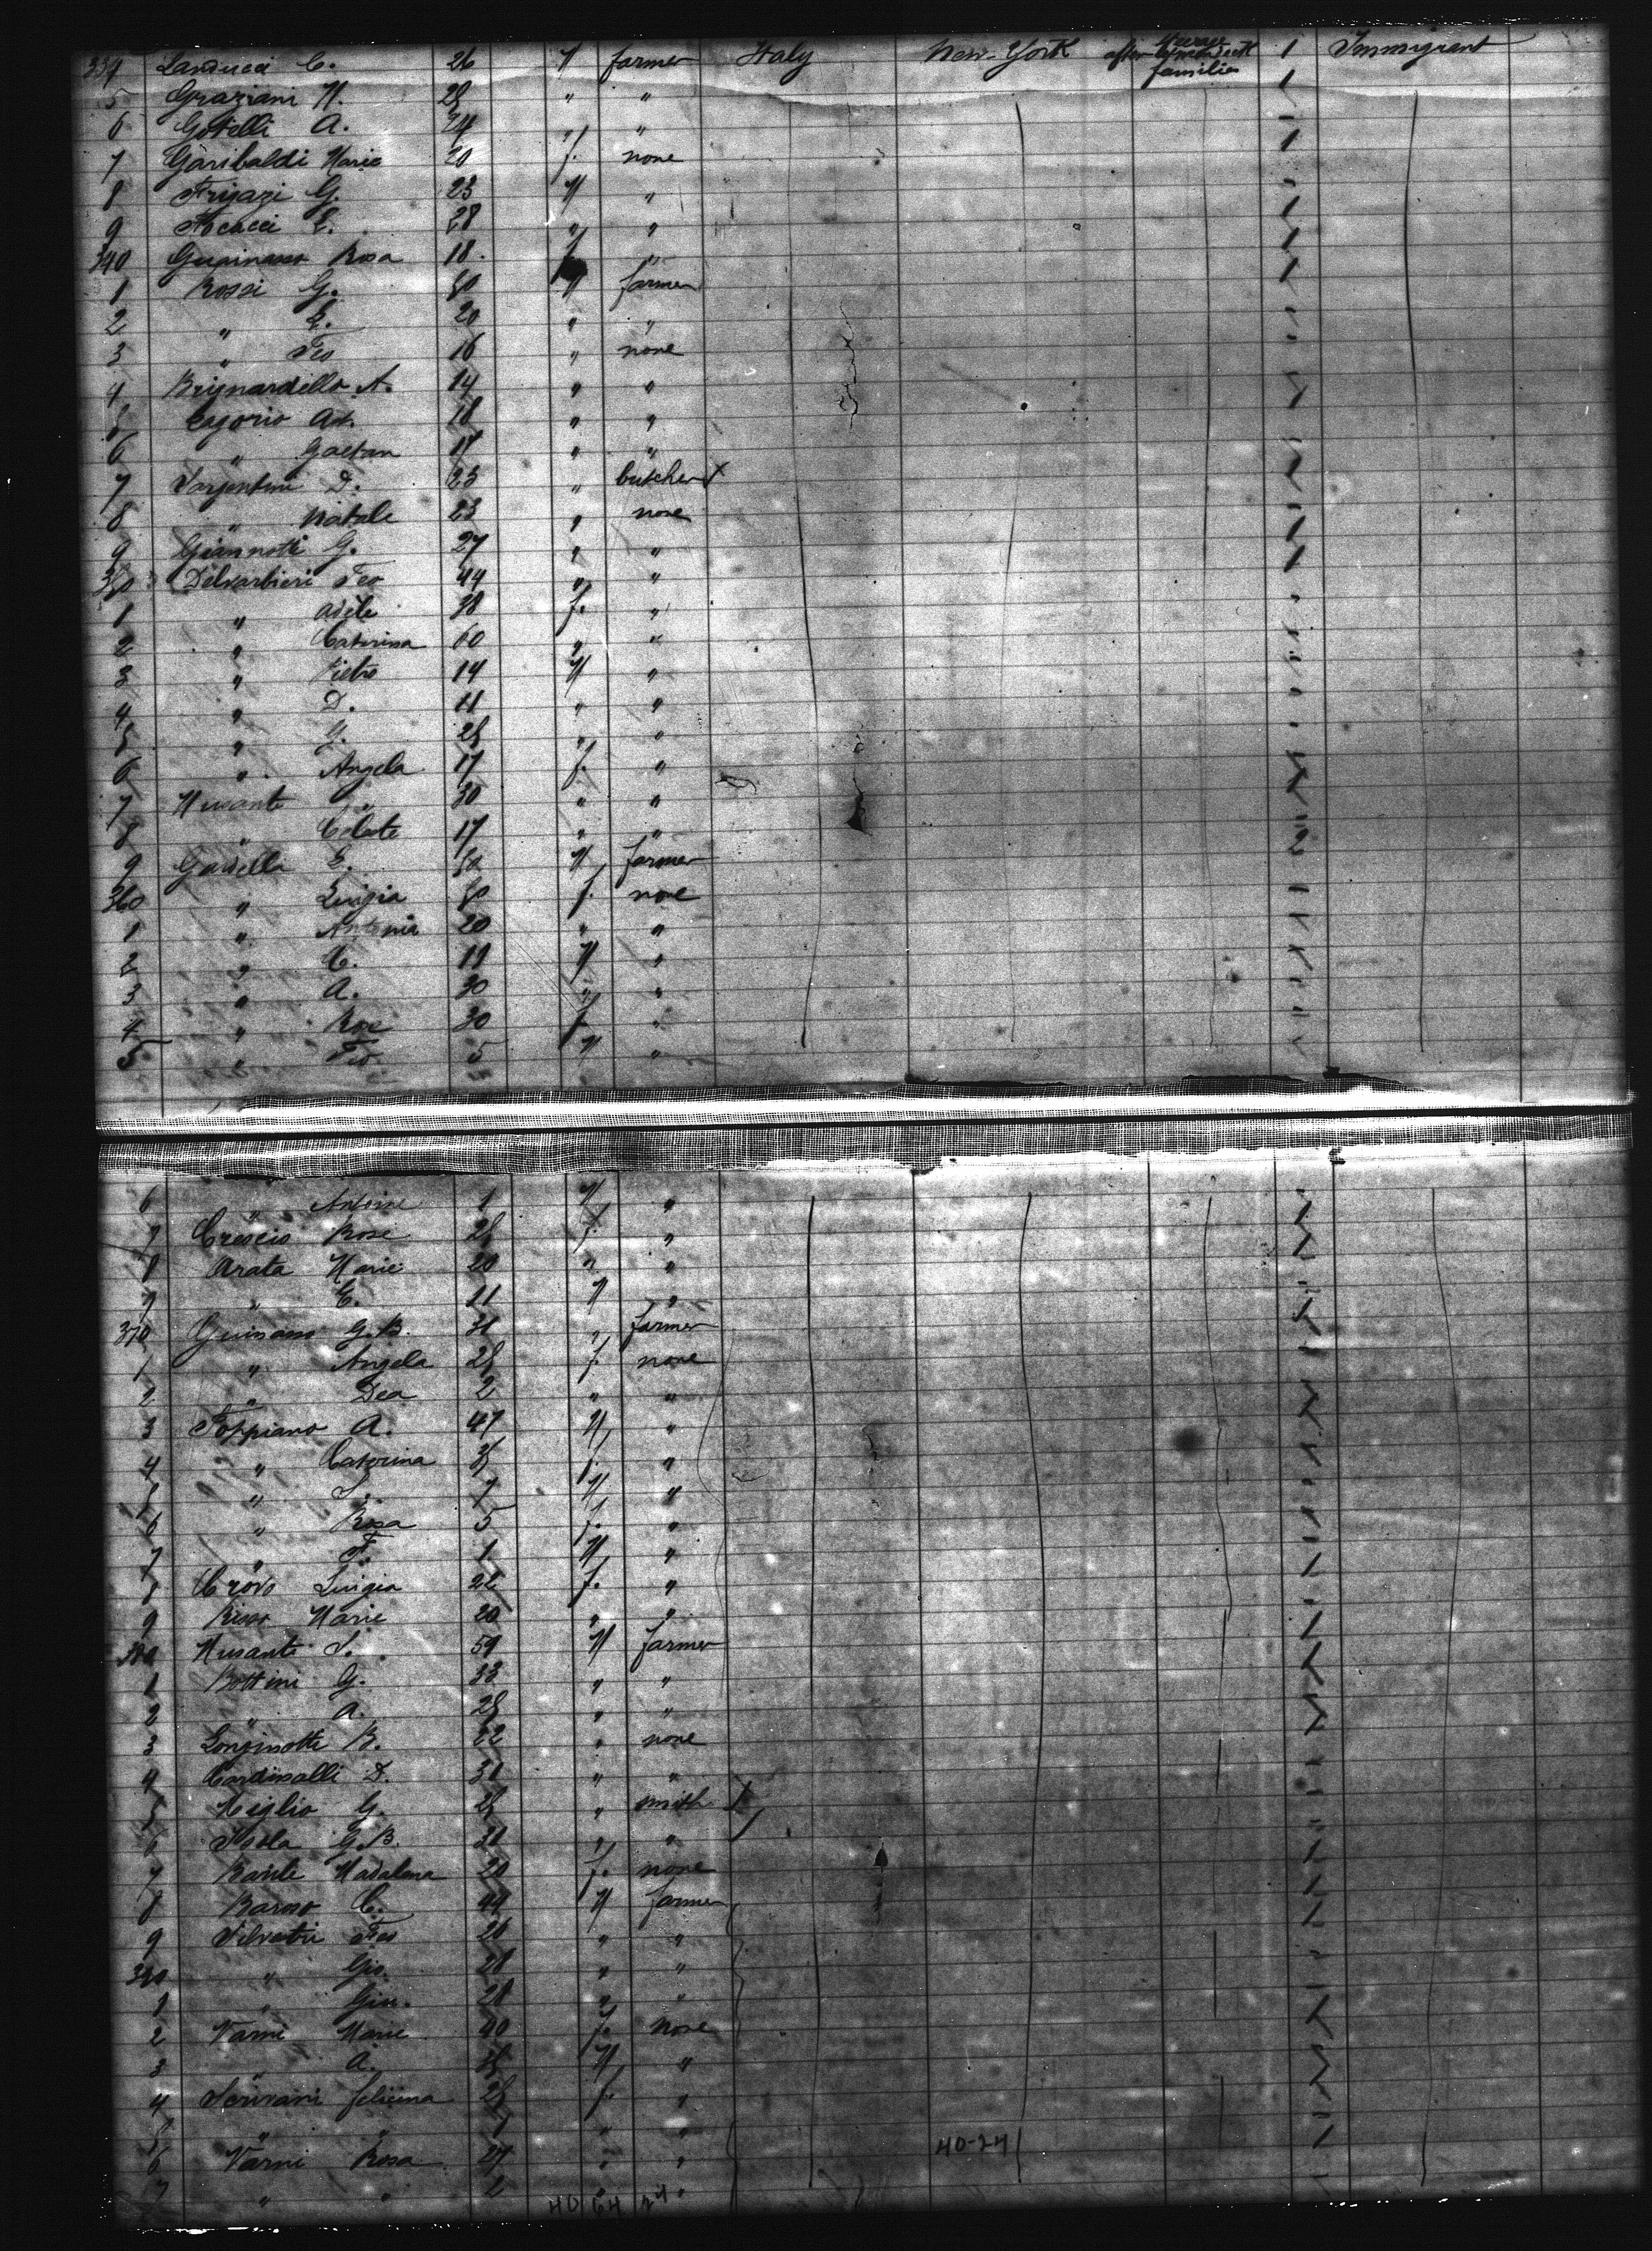 334 Landucci C. 26 M farmer Italy New-York 1 Immigrant
5 Graziani M. 25 " " 1
6 Gotelli A. 24 " "
7 Garibaldi Marie 20 f. none 1
8 Frijazi G. 23 M "
9 Focacci E. 28 " " 1
340 Rosa 18. f. " 1
1 Rossi G. 50 M farmer 1
2 " E. 20 " "
3 " Feo 16 " none
4 Brignardello A. 14 " "
5 Cagorio Ant. 18 " "
6 " Gaetan 17 " "
7 D. 23 " butcher x
8 " Natale 23 " none
9 Giannotti G. 27 " "
350 Delvarbieri Feo 44 " "
1 " Adele 38 f. "
2 " Caterina 60 " "
3 " Pietro 14 M "
4 " D. 11 " "
5 " G. 25 " "
6 " Angela 17 f. "
7 Musante " 30 " "
8 " Celeste 17 " "
9 Gardella E. 50 M farmer
360 " Luigia 50 f. none
1 " Antonia 20 " "
2 " C. 19 M "
3 " A. 30 " "
4 " Rose 30 f. "
5 " Feo 5 M "
6 " Antoine 1 M "
7 Crescio Rose 25 f. "
8 Arata Marie 20 " "
9 " E. 11 M "
370 G.B. 31 " farmer
1 " Angela 25 f. none
2 " Dea 2 " "
3 Foppiano A. 47 M "
4 " Caterina 35 f. "
5 " 7 M "
6 " Rosa 5 f. "
7 " F. 1 M "
8 Crovo Luigia 22 f. "
9 Risso Marie 20 " "
380 Musante S. 59 M farmer
1 Bottini G. 33 " "
2 " A. 25 " "
3 Longinotti B. 22 " none
4 Cardinalli D. 31 " "
5 Miglio G. 25 " smith x
6 Isola G.B. 31 " "
7 Madalena 20 f. none
8 Barosso C. 44 M farmer
9 Silvestri Feo 26 " "
390 " Gio. 28 " "
1 " Giu. 21 " "
2 Varni Marie 40 f. none
3 " A. 35 M "
4 Scrivani felicina 25 f. "
5 " " "
6 Varni Rosa 27 " " 40-24
7 " " 2 " "
40 64 24